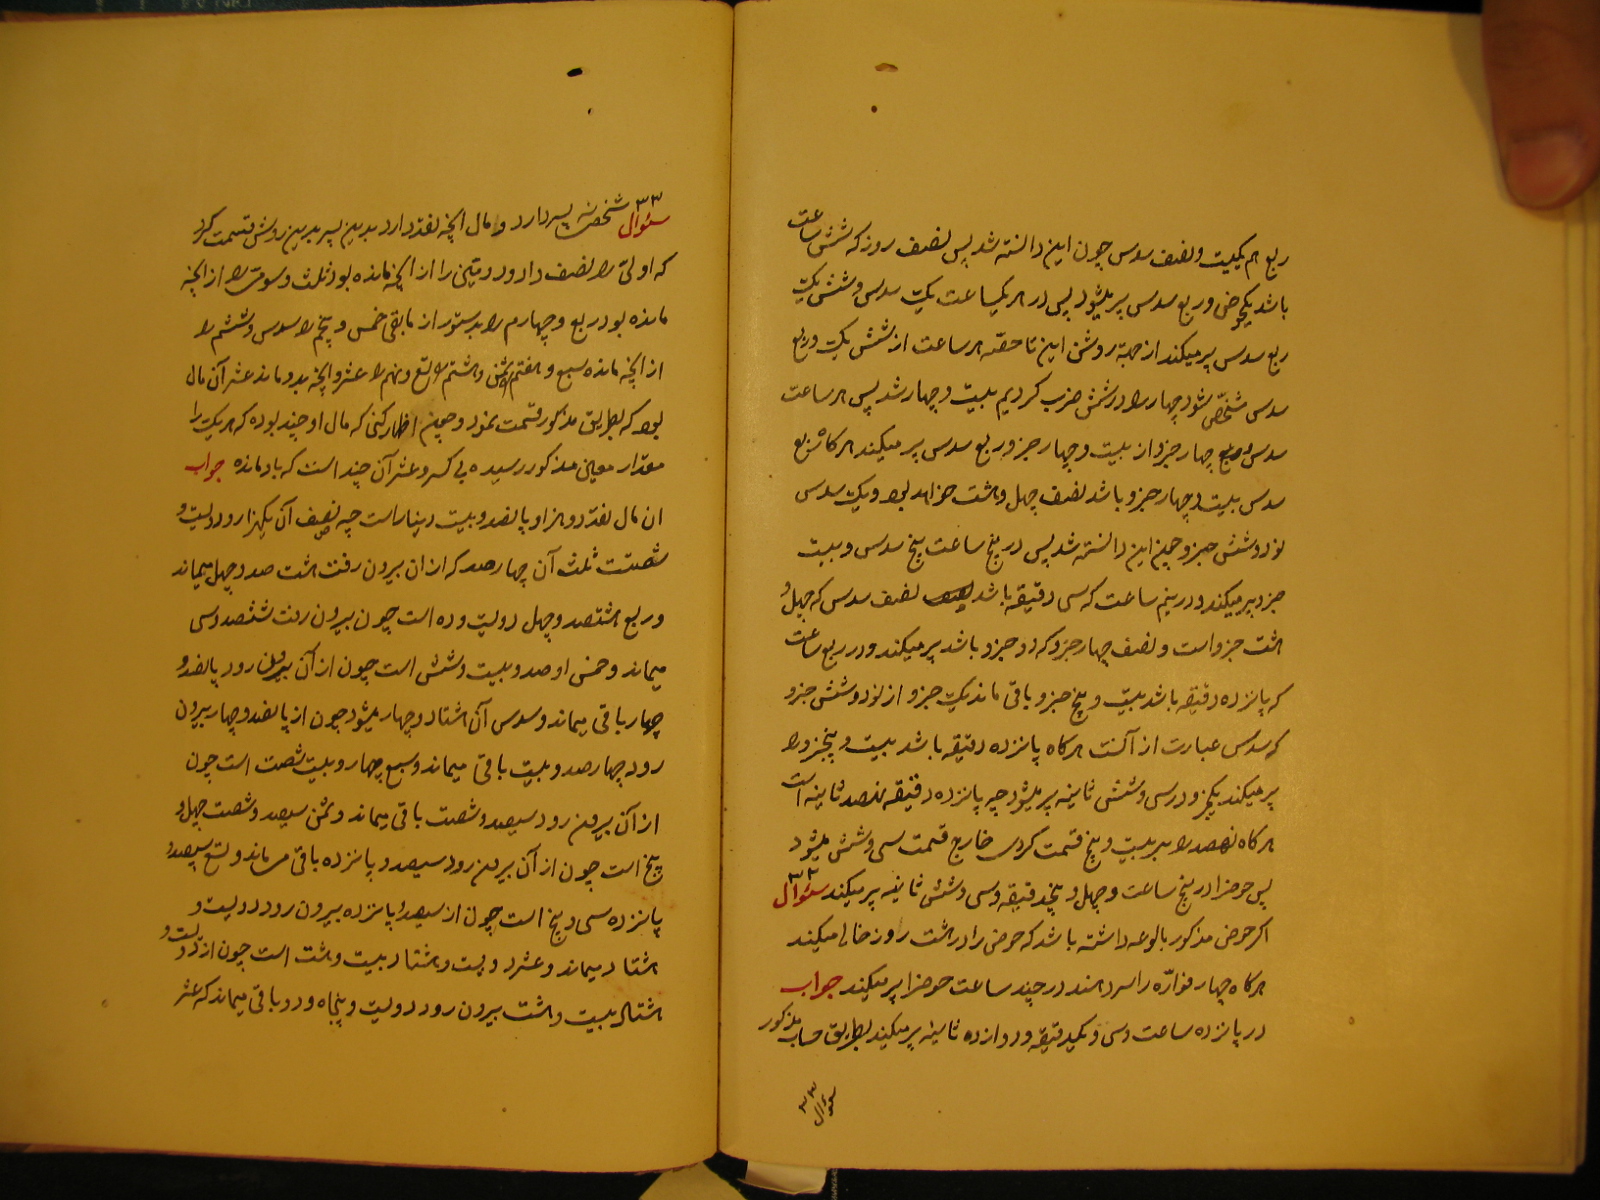 ربع هم یکیت و نصف سدس چون این دانسته شد پس نصف روز که شش ساعت
باشد یکحوض و ربع سدس پر میشود پس در هر یکساعت یک سدس و شش یک
ربع سدس پر میکند از جهة روشن این تا حصّه هر ساعت از شش یک و ربع
سدس مشخّص شود چهار را در شش ضرب کردیم بیست و چهار شد پس هر ساعت
سدس و ربع چهار جزو از بیست و چهار جزو ربع سدس پر میکند هرکاه ربع
سدس بیست و چهار جزو باشد نصف چهل و هشت جزو خواهد بود و یک سدس
نود و شش جزو چون این دانسته شد پس در پنج ساعت پنج سدس و بیست
جزو پر میکند و در نیم ساعت که سی دقیقه باشد نصف سدس که چهل و
هشت جزو است و نصف چهار جزو که دو جزو باشد پر میکند و در ربع ساعت
که پانزده دقیقه باشد بیست و پنج جزو باقی ماند یک جزو از نود و شش جزو
که سدس عبارت از آنست هرکاه پانزده دقیقه باشد بیست و پنجزو را
پر میکند یکجزو در سی و شش ثانیه پر میشود چه پانزده دقیقه نهصد ثانیه است
هرکاه نهصد را بر بیست و پنج قسمت کردی خارج قسمت سی و شش میشود
پس حوضرا در پنج ساعت و چهل و پنجدقیقه و سی و شش ثانیه پر میکند سئوال ۳۲
اکر حوض مذکور بالوعه داشته باشد که حوض را در هشت روز خالی میکند
هرکاه چهار فوّاره را سر دهند در چند ساعت حوضرا پر میکند جواب
در پانزده ساعت و سی و یکدقیقه و دوازده ثانیه پر میکند بطریق حساب مذکور
سئوال ۳۳
سئوال ۳۳ شخصی نه پسر دارد و مال آنچه نقد دارد بدین پسر بدین روش قسمت کرد
که اولی را نصف داد و دویمی را از آنچه مانده بود ثلث و سومی را از آنچه
مانده بود ربع و چهارم را بدستور از مابقی خمس و پنجم را سدس و ششم را
از آنچه مانده سبع و هفتم را ثمن و هشتم را تسع و نهم را عشر و آنچه بدو ماند عشر آن مال
بود که بطریق مذکور قسمت نمود و چنین اظهار کنی که مال او چند بوده که هر یک را
مقدار معین مذکور رسیده بی کسر و عشر آن چند است که باو مانده جواب
ان مال نقد دو هزار و پانصد و بیست دینار است چه نصف آن یکهزار و دویست و
شصت ثلث آن چهارصد که از ان بیرون رفت هشت صد و چهل میماند
و ربع هشتصد و چهل دویست و ده است چون بیرون رفت ششصد و سی
میماند و خمس او صد و بیست و شش است چون از آن بیرون رود پانصد و
چهار باقی میماند و سدس آن هشتاد و چهار میشود چون از پانصد و چهار بیرون
رود چهارصد و بیست باقی میماند و سبع چهار و بیست شصت است چون
از آن بیرون رود سیصد و شصت باقی میماند و ثمن سیصد و شصت چهل و
پنج است چون از آن بیرون رود سیصد و پانزده باقی میماند و تسع سیصد و
پانزده سی و پنج است چون از سیصد و پانزده بیرون رود دویست و
هشتاد میماند و عشر دویست و هشتاد بیست و هشت است چون از دویست و
هشتاد بیست و هشت بیرون رود دویست و پنجاه و دو باقی میماند که عشر